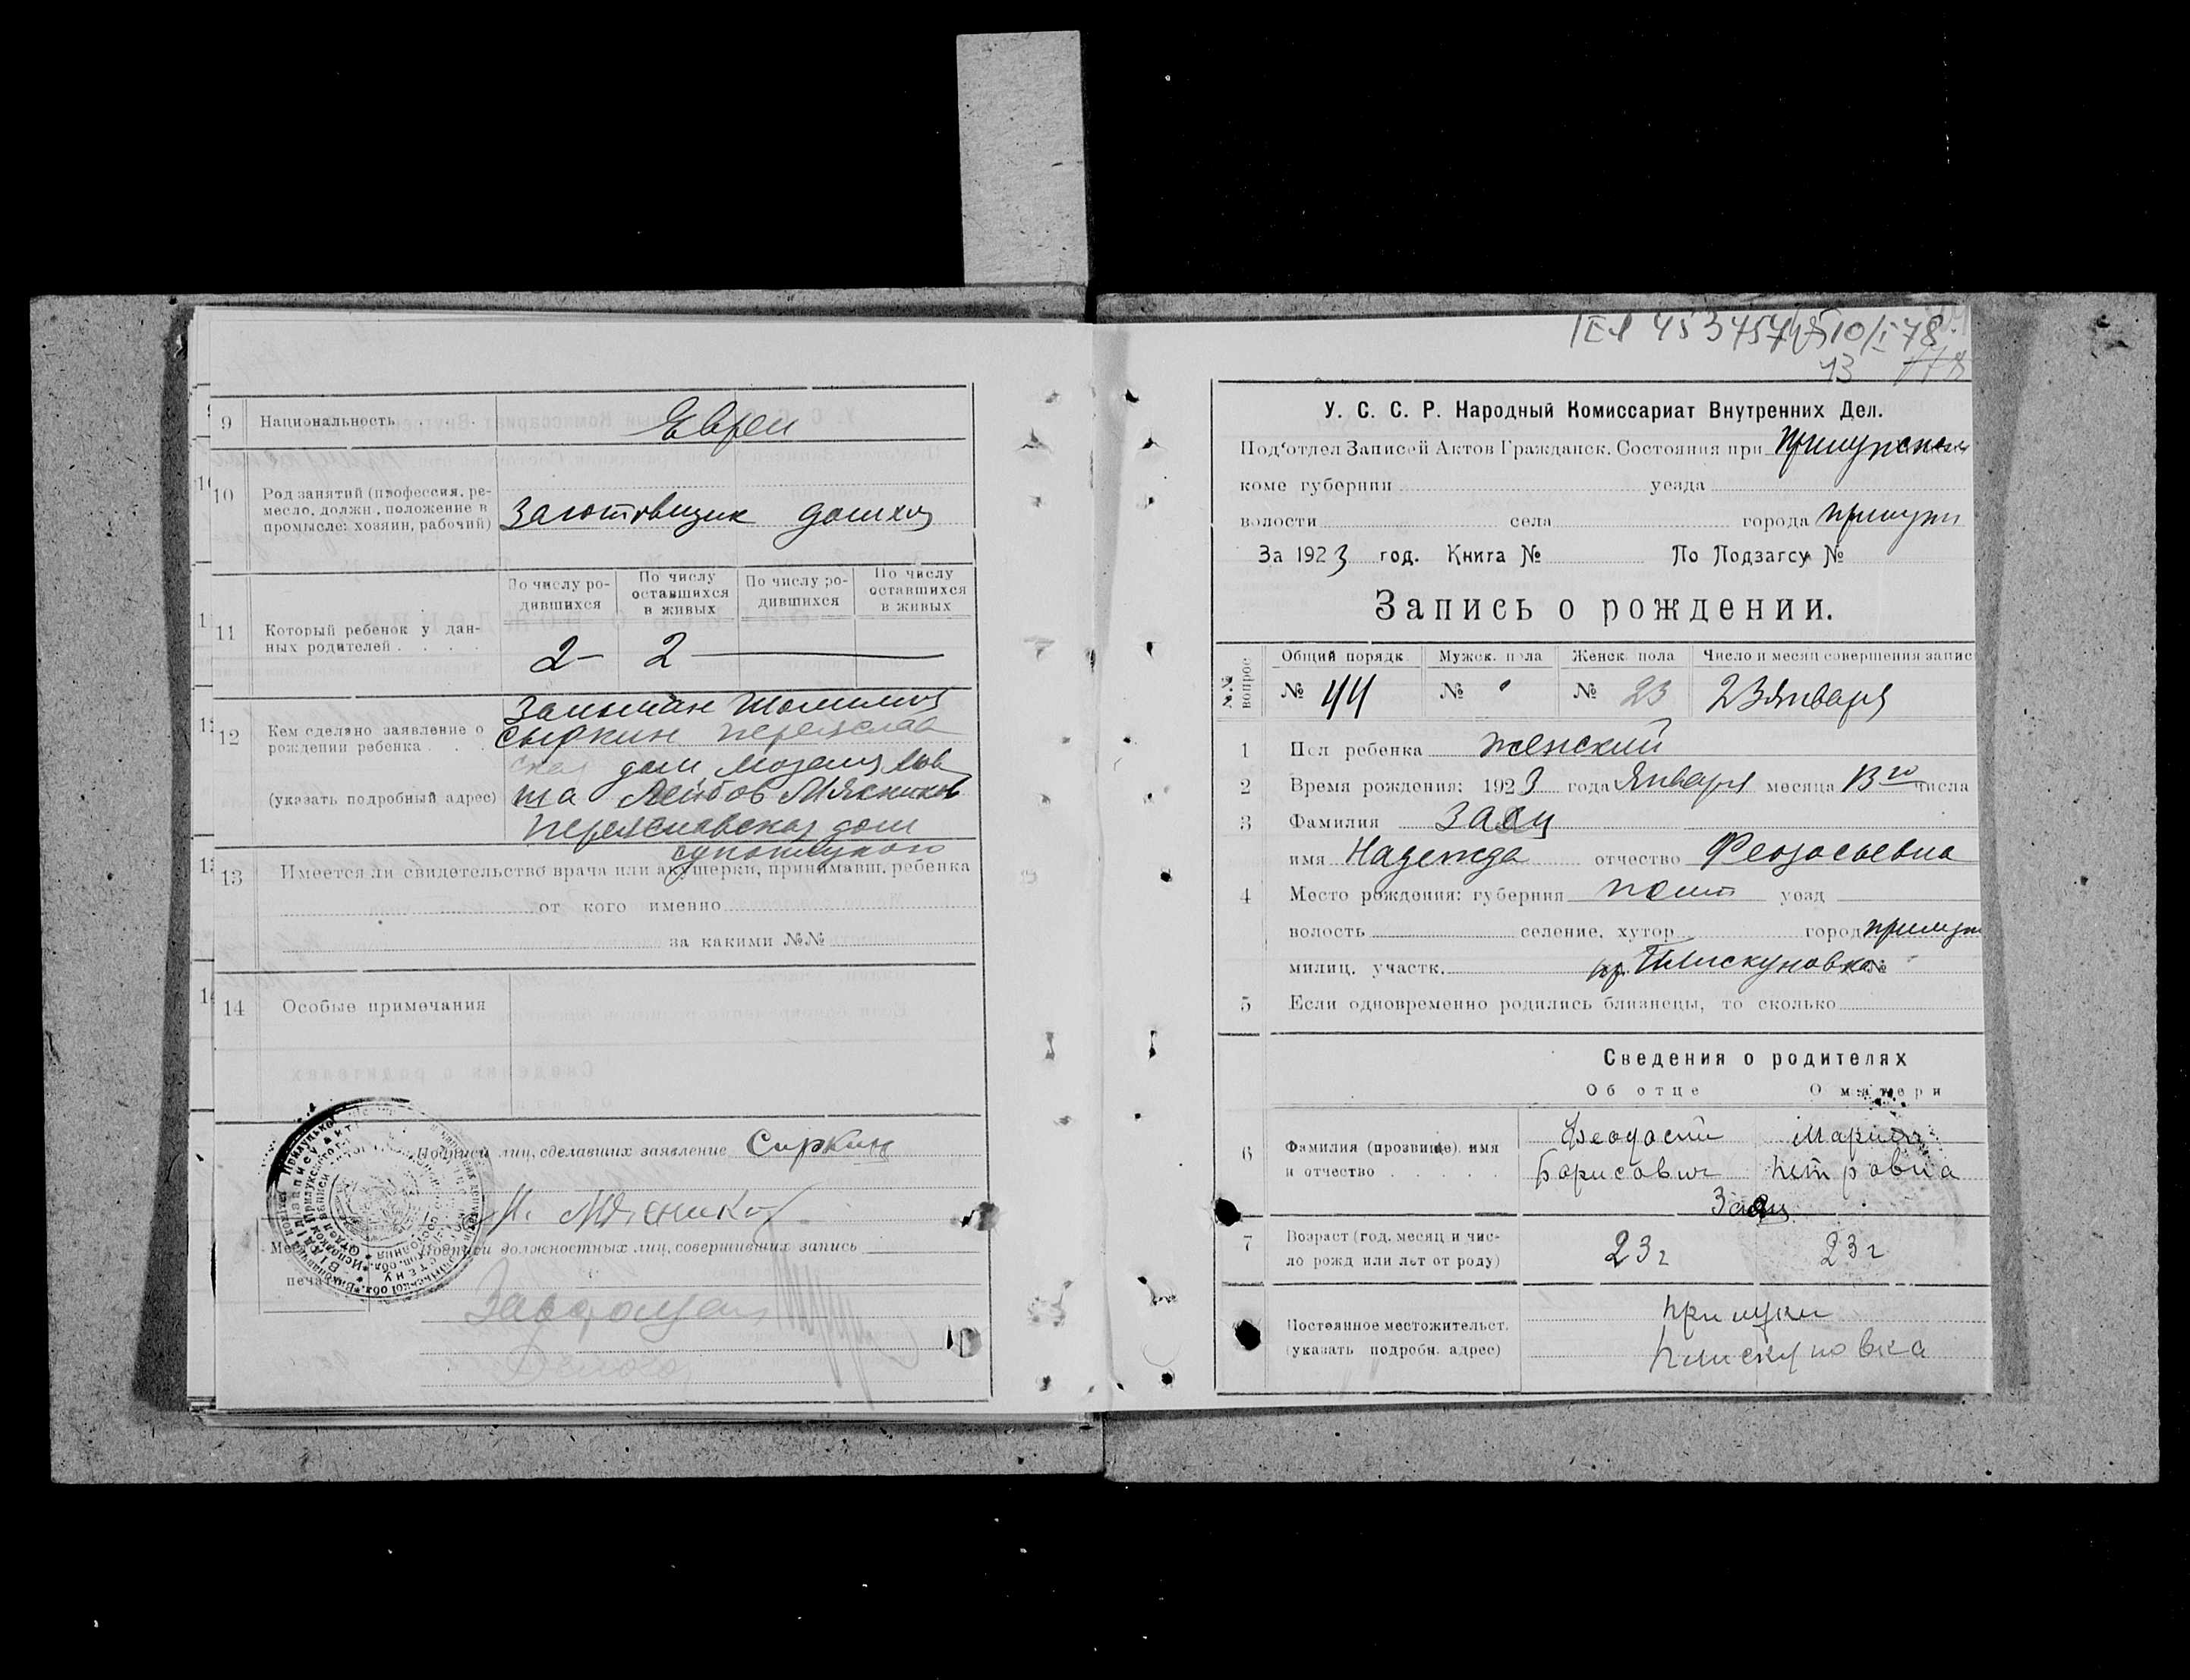 9 Национальность . . . Евреи
10 Род занятий (профессия, ре-
месло, должн., положение в
промысле: хозяин, рабочий) Заготовщик домхоз
11 Который ребенок у дан-
ных родителей . . . .
По числу ро-
дившихся
По числу
оставшихся
в живых
По числу ро-
дившихся
По числу
оставшихся
в живых
2 2
12 Кем сделано заявление о
рождении ребенка . . .
(указать подробный адрес)
Залман
Сыркин Переяслав
ская дом
Лейбов Мясников
Переяславская дом
13 Имеется ли свидетельство врача или акушерки, принимавш. ребенка
от кого именно
за какими №№
14 Особые примечания
Подписи лиц, сделавших заявление Сиркин
Мясников
Подписи должностных лиц, совершивших запись
Место
печати
10/I 78
13
У. С. С. Р. Народный Комиссариат Внутренних Дел.
Под'отдел Записей Актов Гражданск. Состояния при Прилукском
коме губернии уезда
волости села города Прилуки
За 1923 год. Книга № По Подзагсу №
Запись о рождении.
№№ вопрос
Общий порядк. Мужск. пола Женск. пола Число и месяц совершения запис
№ 44 № № 23 23 января
1 Пол ребенка женский
2 Время рождения: 1923 года Января месяца 13го числа
3 Фамилия Заяц
имя Надежда отчество Феодосиевна
4 Место рождения: губерния Полт уезд
волость селение, хутор город Прилуки
милиц. участк. Плискуновка №
5 Если одновременно родились близнецы, то сколько
Сведения о родителях
Об отце О матери
6 Фамилия (прозвище) имя
и отчество . . . . .
Феодосий Мария
Борисович Петровна
Заяц
7 Возраст (год, месяц и чис-
ло рожд или лет от роду) 23 г 23 г
Постоянное местожительст.
(указать подробн. адрес)
Прилуки
Плискуновка